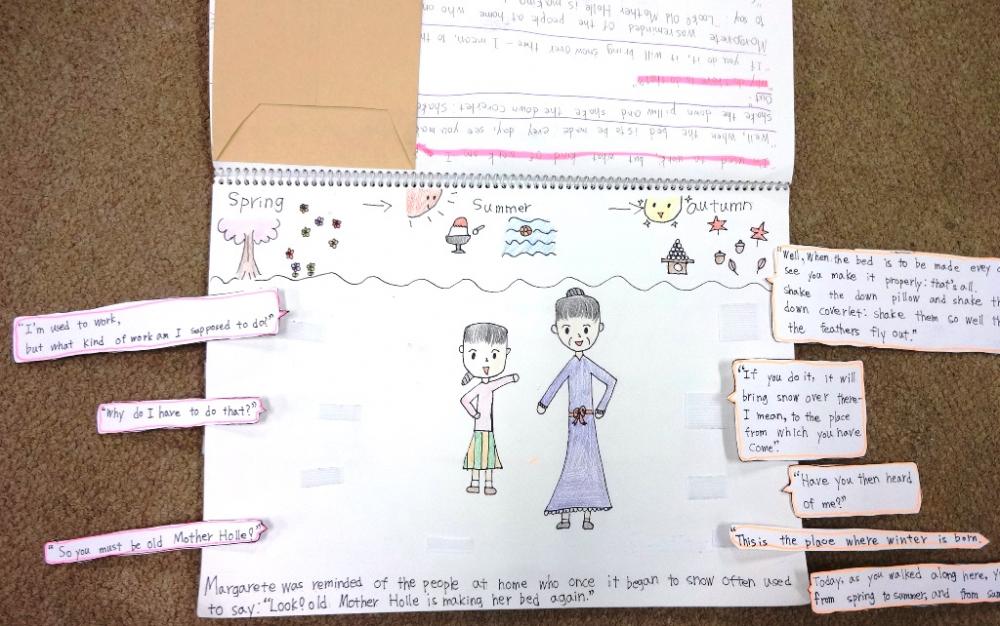 used to work but what kind of work am I
"Well, when the bed is to be made every day, see you
shake the down pillow and shake the down coverlet. Shake
out"
"If you do it, it will bring snow over there - I mean, to
Margarete was reminded of the people at home who
to say: "Look! old Mother Holle is making
Spring → Summer → autumn
"I'm used to work,
but what kind of work am I supposed to do?"
"Why do I have to do that?"
"So you must be old Mother Holle?"
"Well, when the bed is to be made every
see you make it properly: that's all.
shake the down pillow and shake
down coverlet: shake them so well
the feathers fly out."
"If you do it, it will
bring snow over there-
I mean, to the place
from which you have
come".
"Have you then heard
of me?"
"This is the place where winter is born.
Today, as you walked along here,
from spring to summer, and from
Margarete was reminded of the people at home who once it began to snow often used
to say: "Look! old Mother Holle is making her bed again."